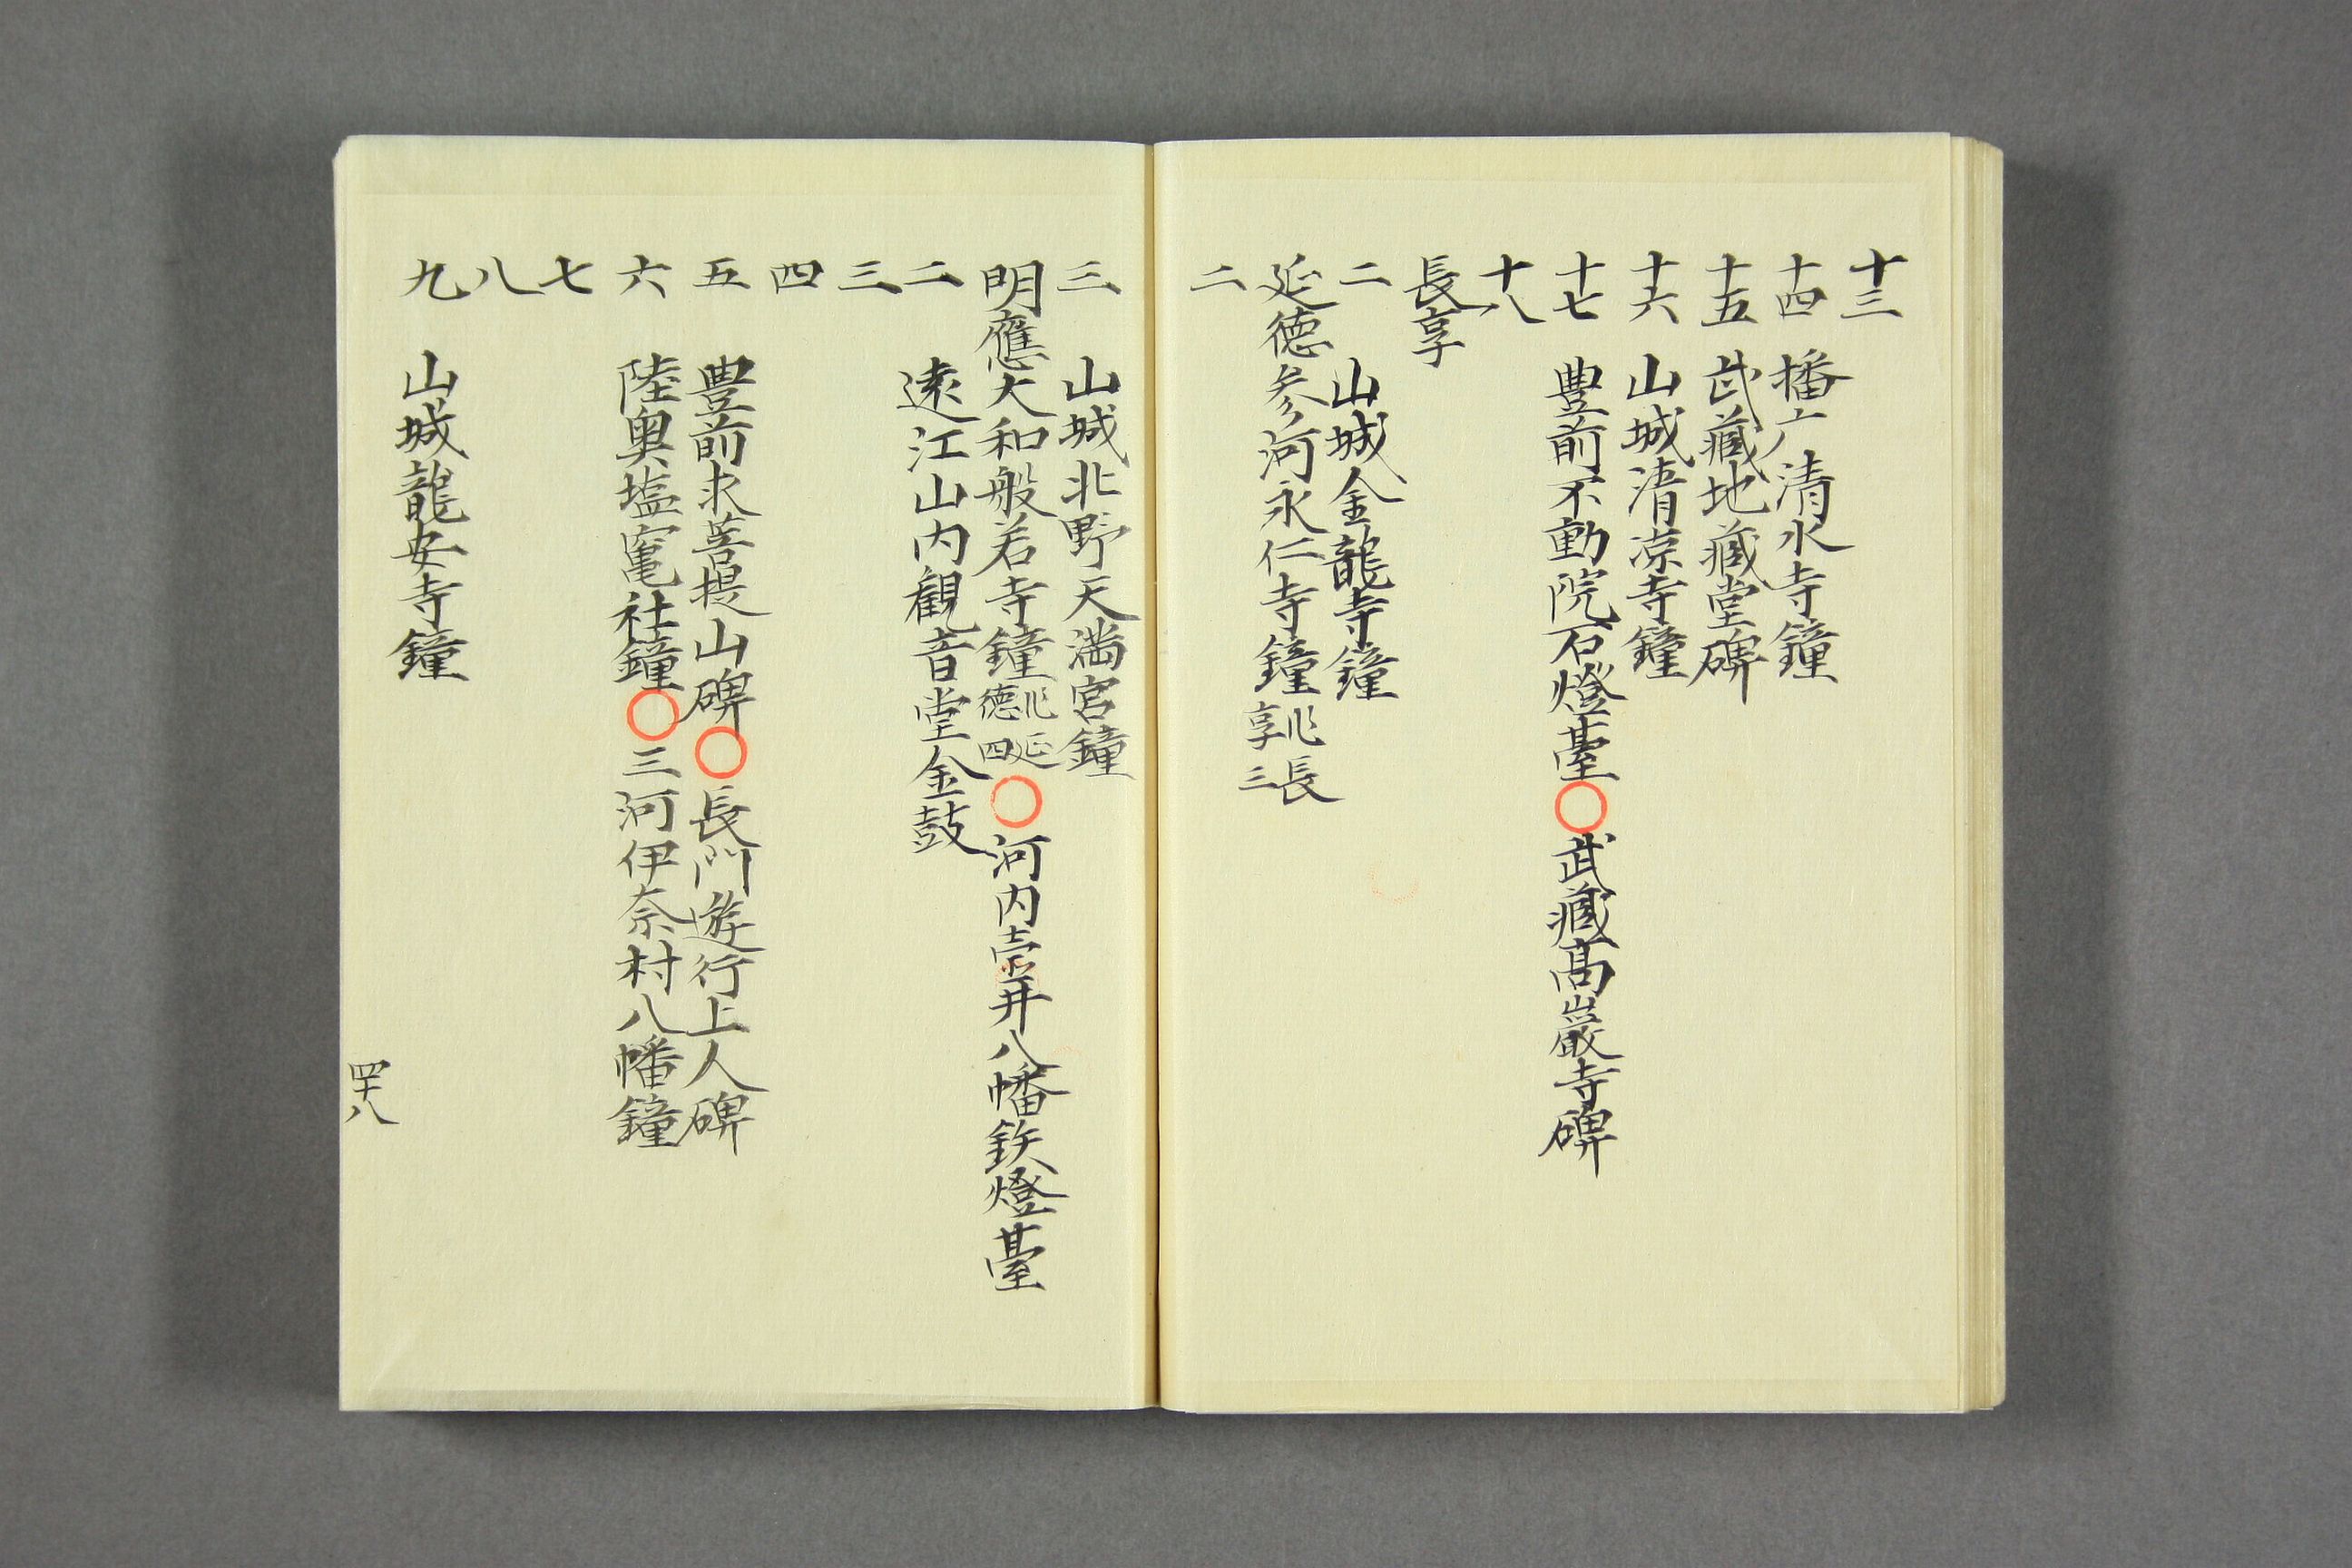 十三
十四 播广清水寺鐘
十五 武藏地藏堂碑
十六 山城清凉寺鐘
十七 豊前不動院石燈臺〇武藏髙巖寺碑
十八
長享
二 山城金龍寺鐘
延徳 参河永仁寺鐘 長享三
二
三 山城北野天満宮鐘
明應 大和般若寺鐘 延徳四〇河内壷井八幡鉄燈臺
二 遠江山内観音堂金鼓
三
四
五 豊前求菩提山碑〇長門遊行上人碑
六 陸奥塩竃社鐘〇三河伊奈村八幡鐘
七
八
九 山城龍安寺鐘
四十八